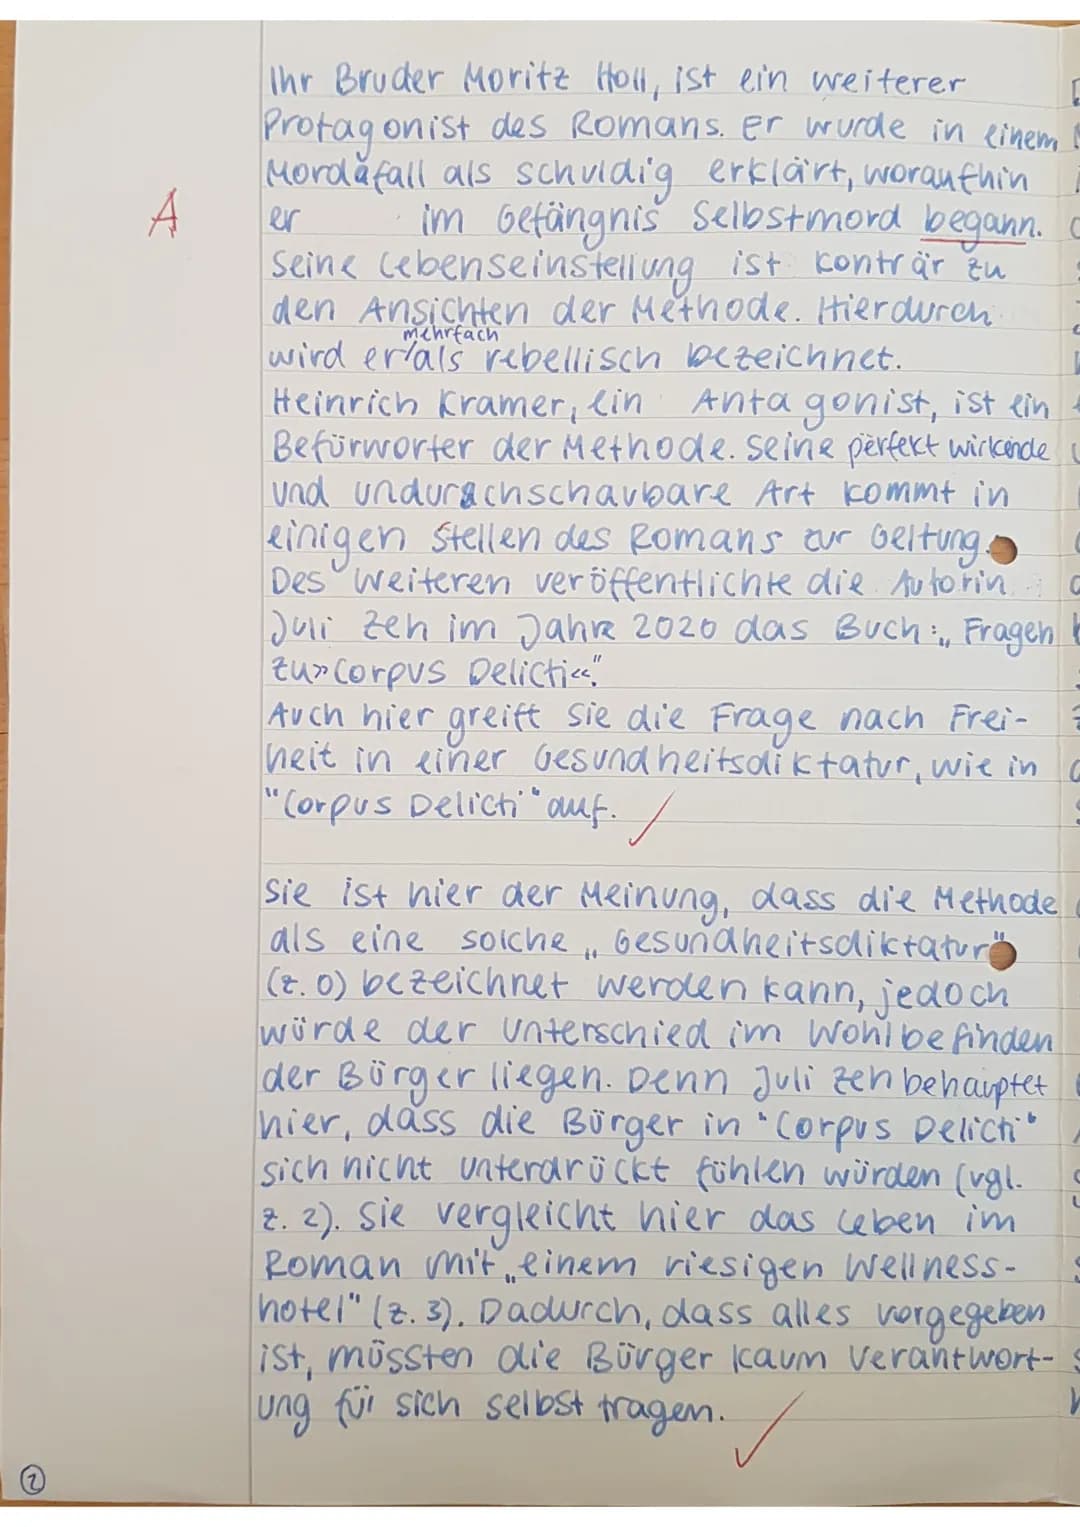 Ihr Bruder Moritz Holl, ist ein weiterer
Protagonist des Romans. Er wurde in einem
Mordafall als schuldig erklärt, woraufhin
A er im Gefängnis Selbstmord begann.
Seine Lebenseinstellung ist konträr zu
den Ansichten der Methode. Hierdurch
mehrfach
wird er/als rebellisch bezeichnet.
Heinrich Kramer, ein Antagonist, ist ein
Befürworter der Methode. Seine perfekt wirkende
und undurchschaubare Art kommt in
einigen Stellen des Romans zur Geltung.
Des Weiteren veröffentlichte die Autorin
Juli Zeh im Jahre 2020 das Buch: „Fragen
zu »Corpus Delicti«".
Auch hier greift sie die Frage nach Frei-
heit in einer Gesundheitsdiktatur, wie in
"Corpus Delicti" auf.
Sie ist hier der Meinung, dass die Methode
als eine solche „Gesundheitsdiktatur"
(Z. 0) bezeichnet werden kann, jedoch
würde der Unterschied im Wohlbefinden
der Bürger liegen. Denn Juli Zeh behauptet
hier, dass die Bürger in "Corpus Delicti"
sich nicht unterdrückt fühlen würden (vgl.
Z. 2). Sie vergleicht hier das Leben im
Roman mit „einem riesigen Wellness-
hotel" (Z. 3). Dadurch, dass alles vorgegeben
ist, müssten die Bürger kaum Verantwort-
ung für sich selbst tragen.
2